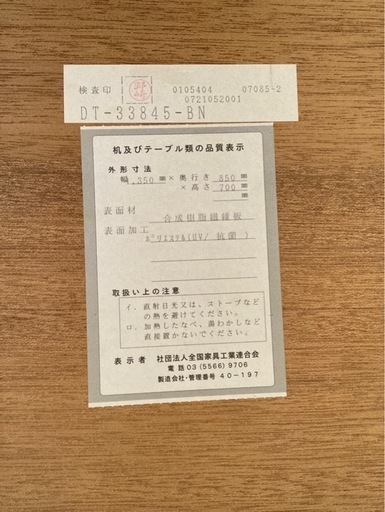 検査印 0105404 07085-2
0721052001
DT-33845-BN
机及びテーブル類の品質表示
外形寸法
幅 1,350 ㎜ × 奥行き 850 ㎜
× 高さ 700 ㎜
表面材 合成樹脂繊維板
表面加工 ポリエステル(UV/ 抗菌 )
取扱い上の注意
イ. 直射日光又は、ストーブなど
の熱を避けてください。
ロ. 加熱したなべ、湯わかしなど
直接置かないでください。
表示者 社団法人全国家具工業連合会
電話 03 (5566) 9706
製造会社・管理番号 40-197